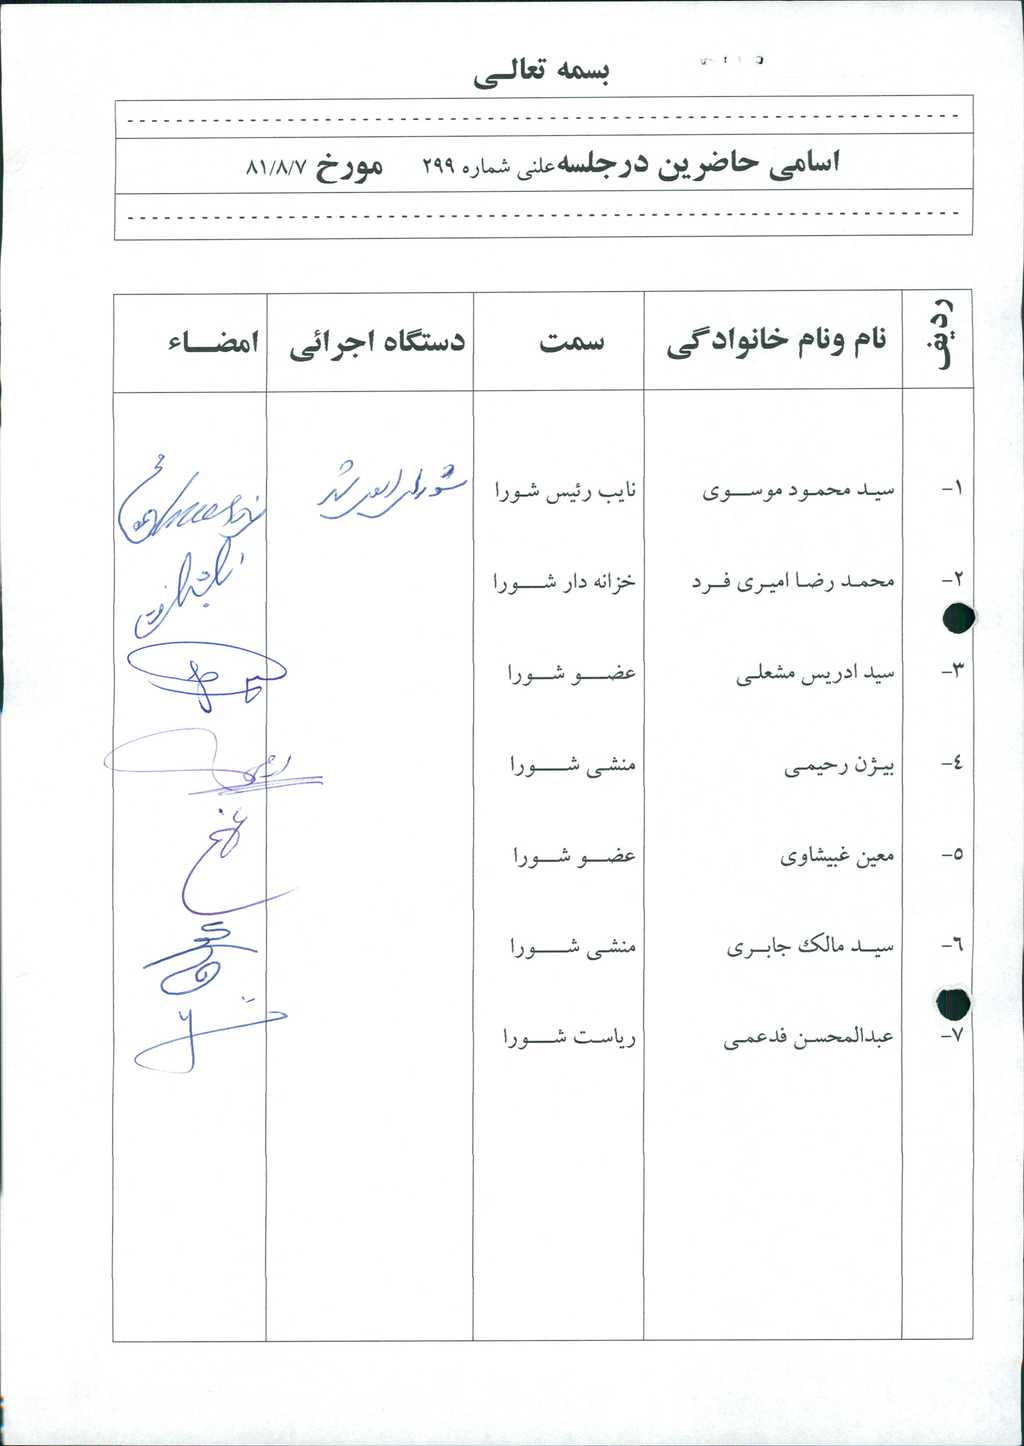 بسمه تعالی
اسامی حاضرین درجلسه علنی شماره ۲۹۹ مورخ ۸۱/۸/۷
ردیف نام ونام خانوادگی سمت دستگاه اجرائی امضاء
۱- سید محمود موسوی نایب رئیس شورا شورای اسلامی شهر
۲- محمد رضا امیری فرد خزانه دار شورا
۳- سید ادریس مشعلی عضو شورا
۴- بیژن رحیمی منشی شورا
۵- معین غبیشاوی عضو شورا
۶- سید مالک جابری منشی شورا
۷- عبدالمحسن فدعمی ریاست شورا